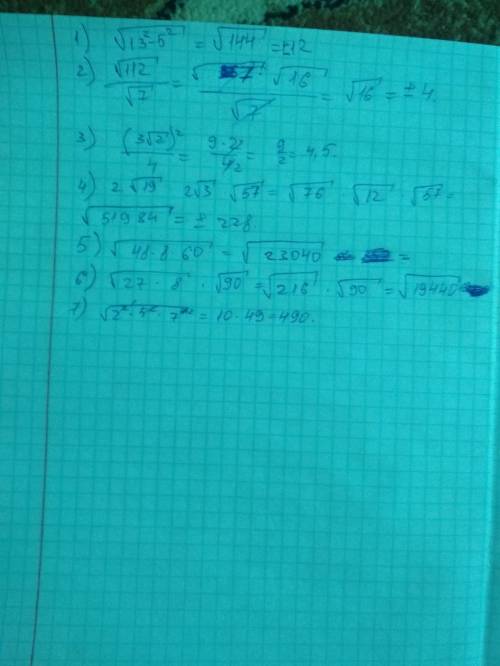 1) √(13²-5²) = √144 = ±12
2) √112 / √7 = √7 · √16 / √7 = √16 = ± 4.
3) (3√2)² / 4 = 9·2 / 4₂ = 9/2 = 4,5.
4) 2√19 2√3 √57 = √76 √12 √57 =
√51984 = ± 228.
5) √48·8·60 = √23040 =
6) √27·8 · √90 = √216 · √90 = √19440
7) = 10·49=490.